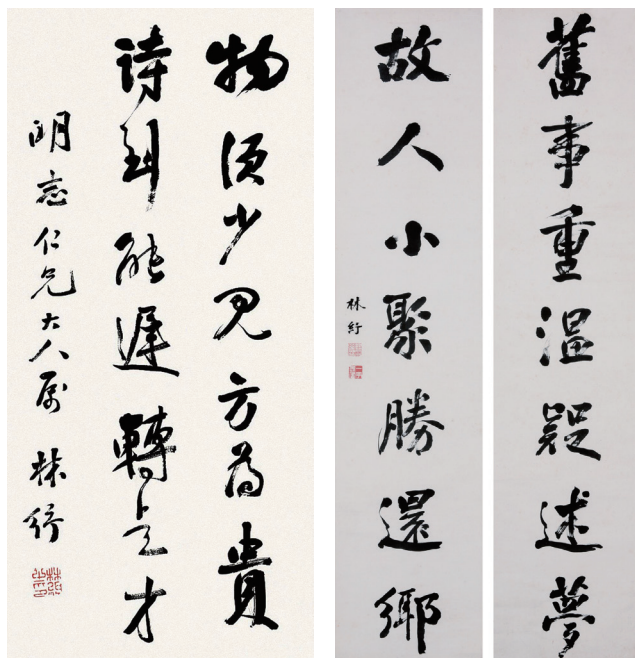 物須少見方為貴
詩到能遲轉是才
明志仁兄大人属 林紓
舊事重溫疑述夢
故人小聚勝還鄉
林紓